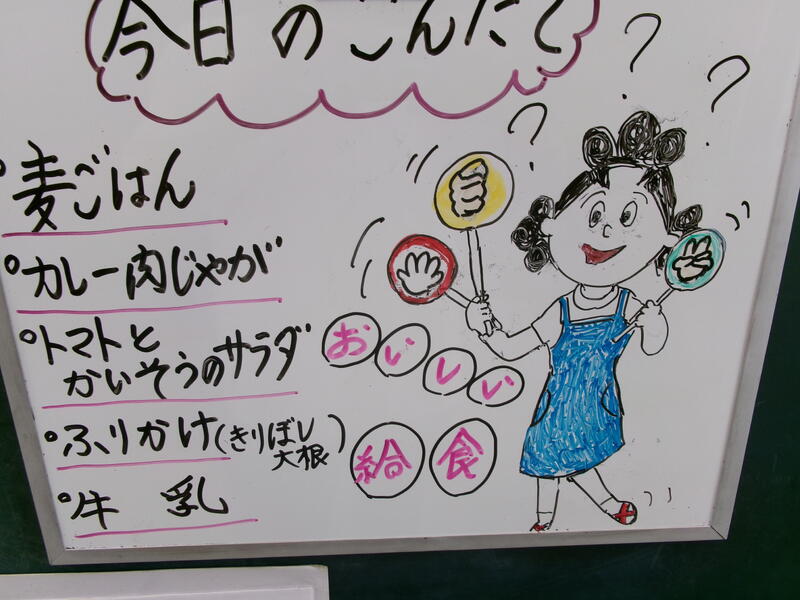 今日のこんだて
麦ごはん
カレー肉じゃが
トマトと
かいそうのサラダ
ふりかけ(きりぼし
大根)
牛乳
おいしい
給食
? ? ?